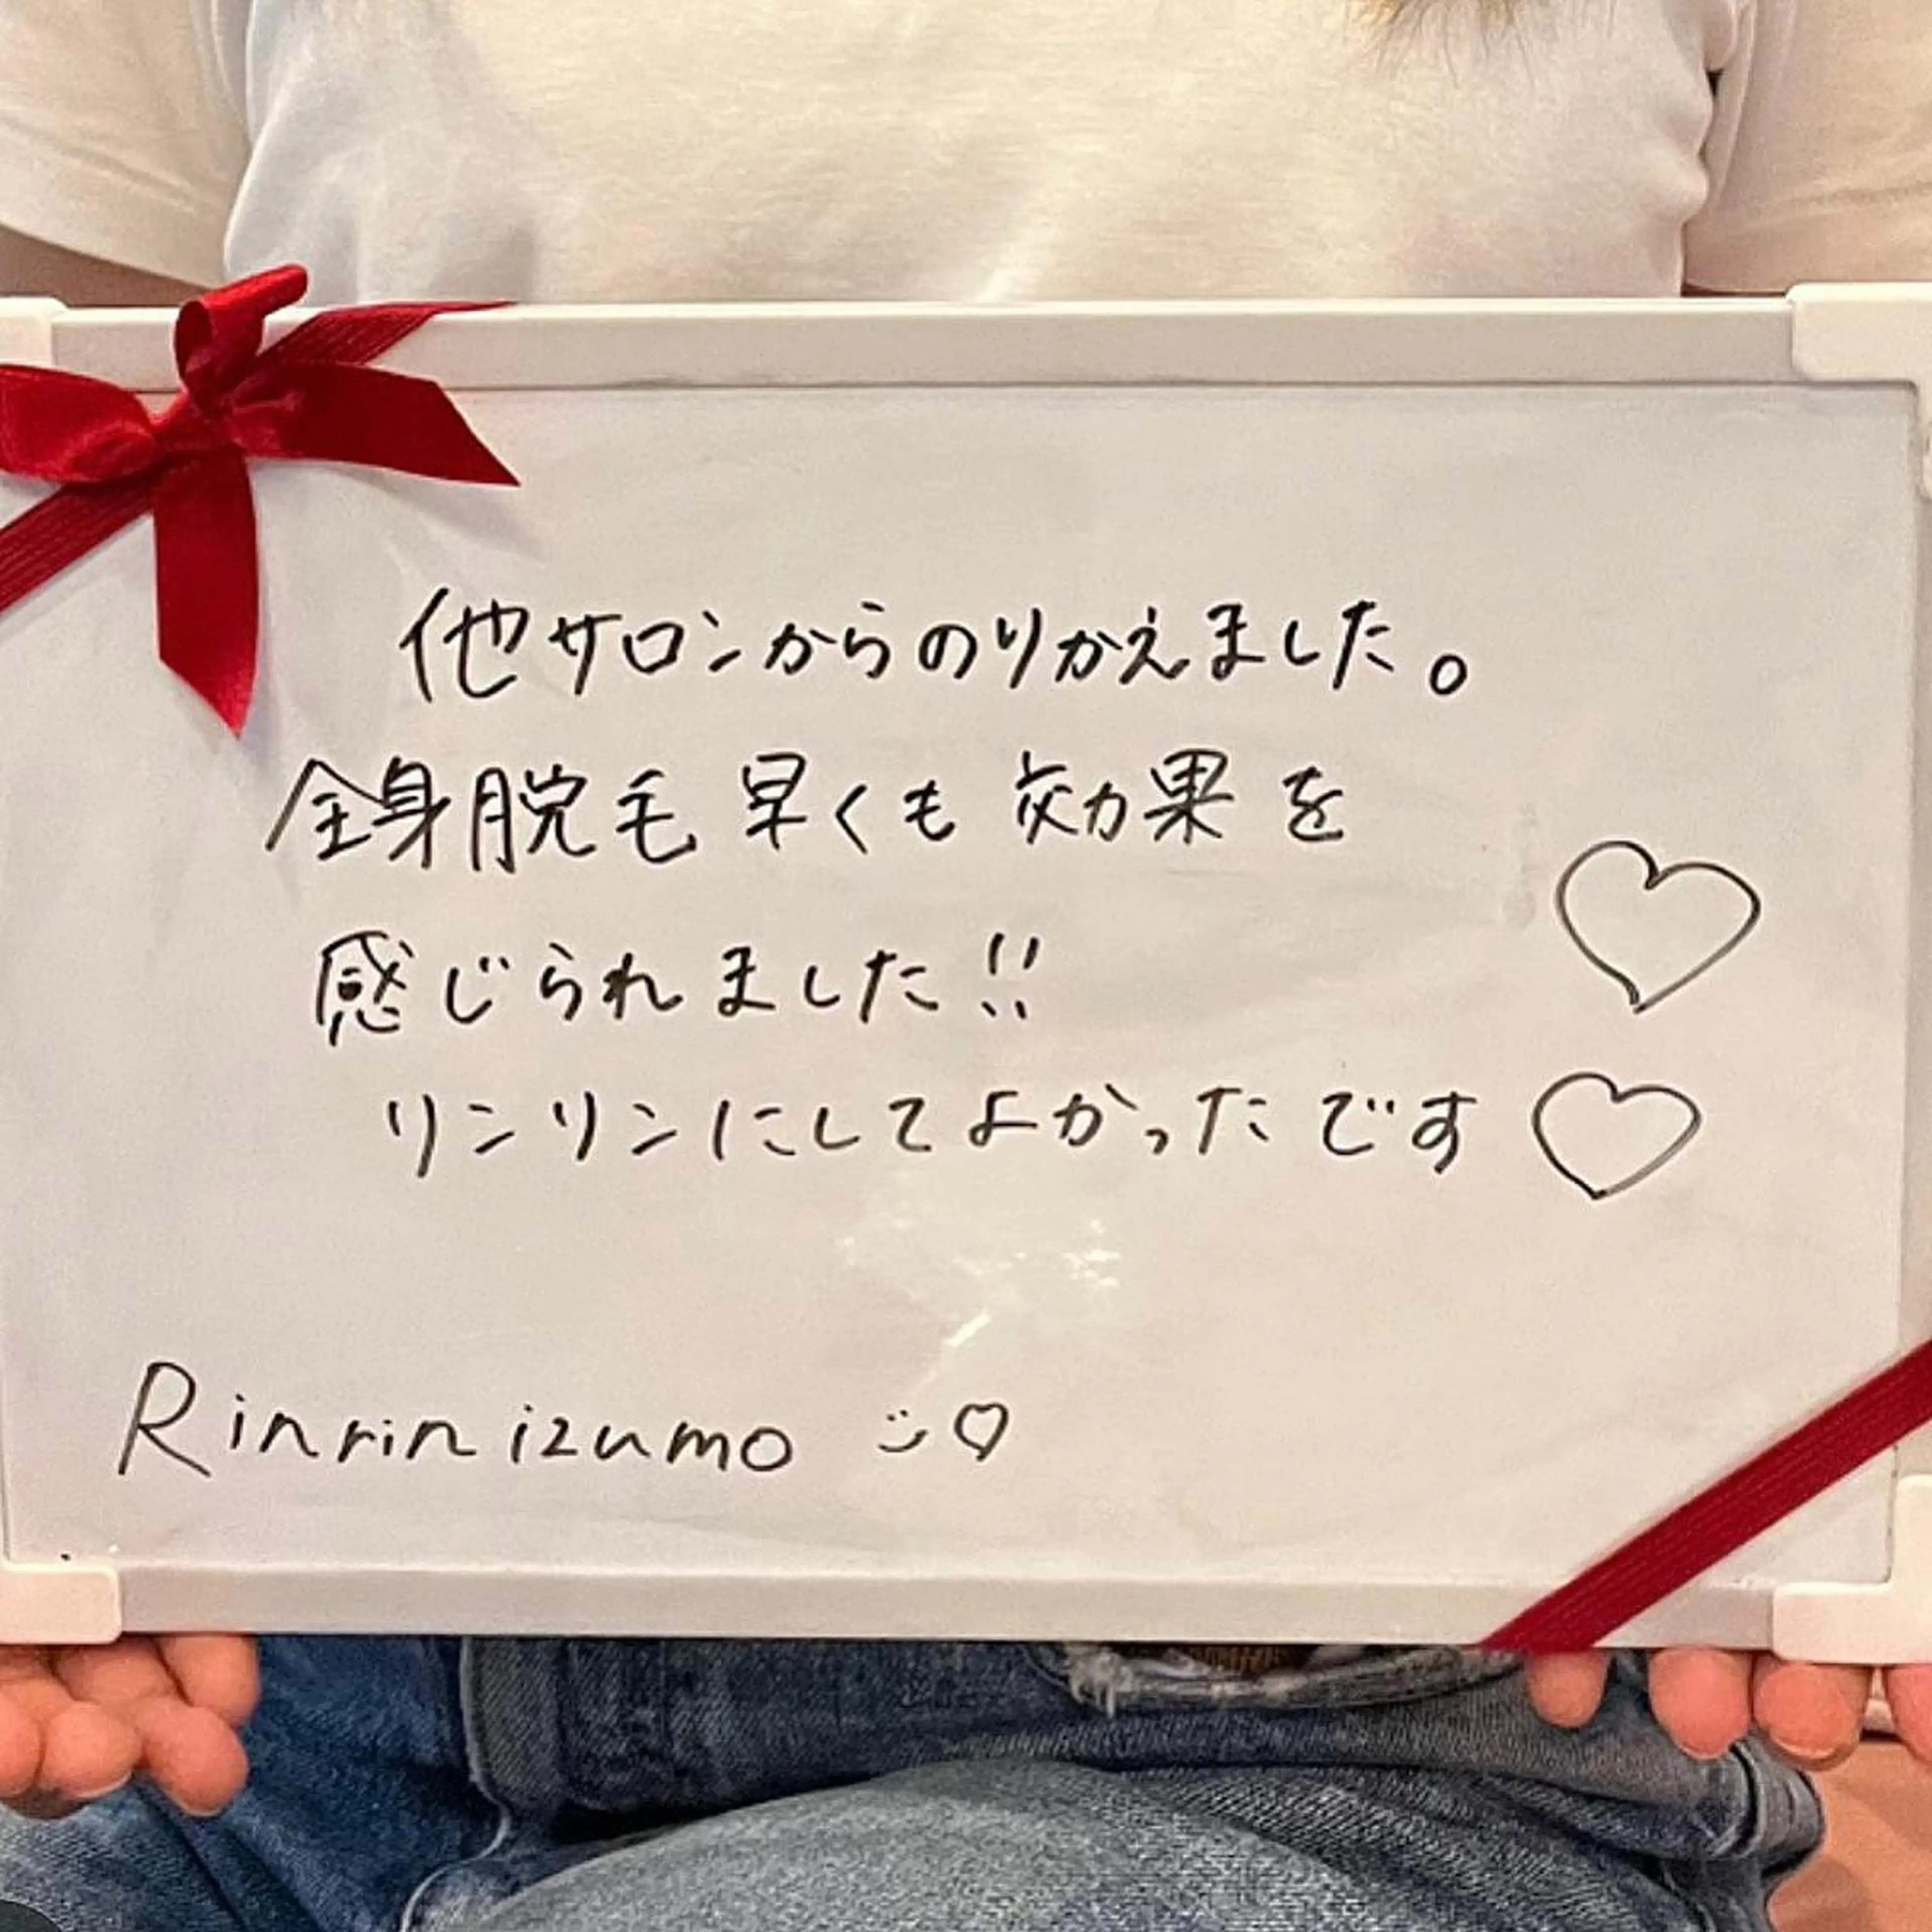 他サロンからのりかえました。
全身脱毛早くも効果を
感じられました!!
リンリンにしてよかったです♡
Rinrin izumo